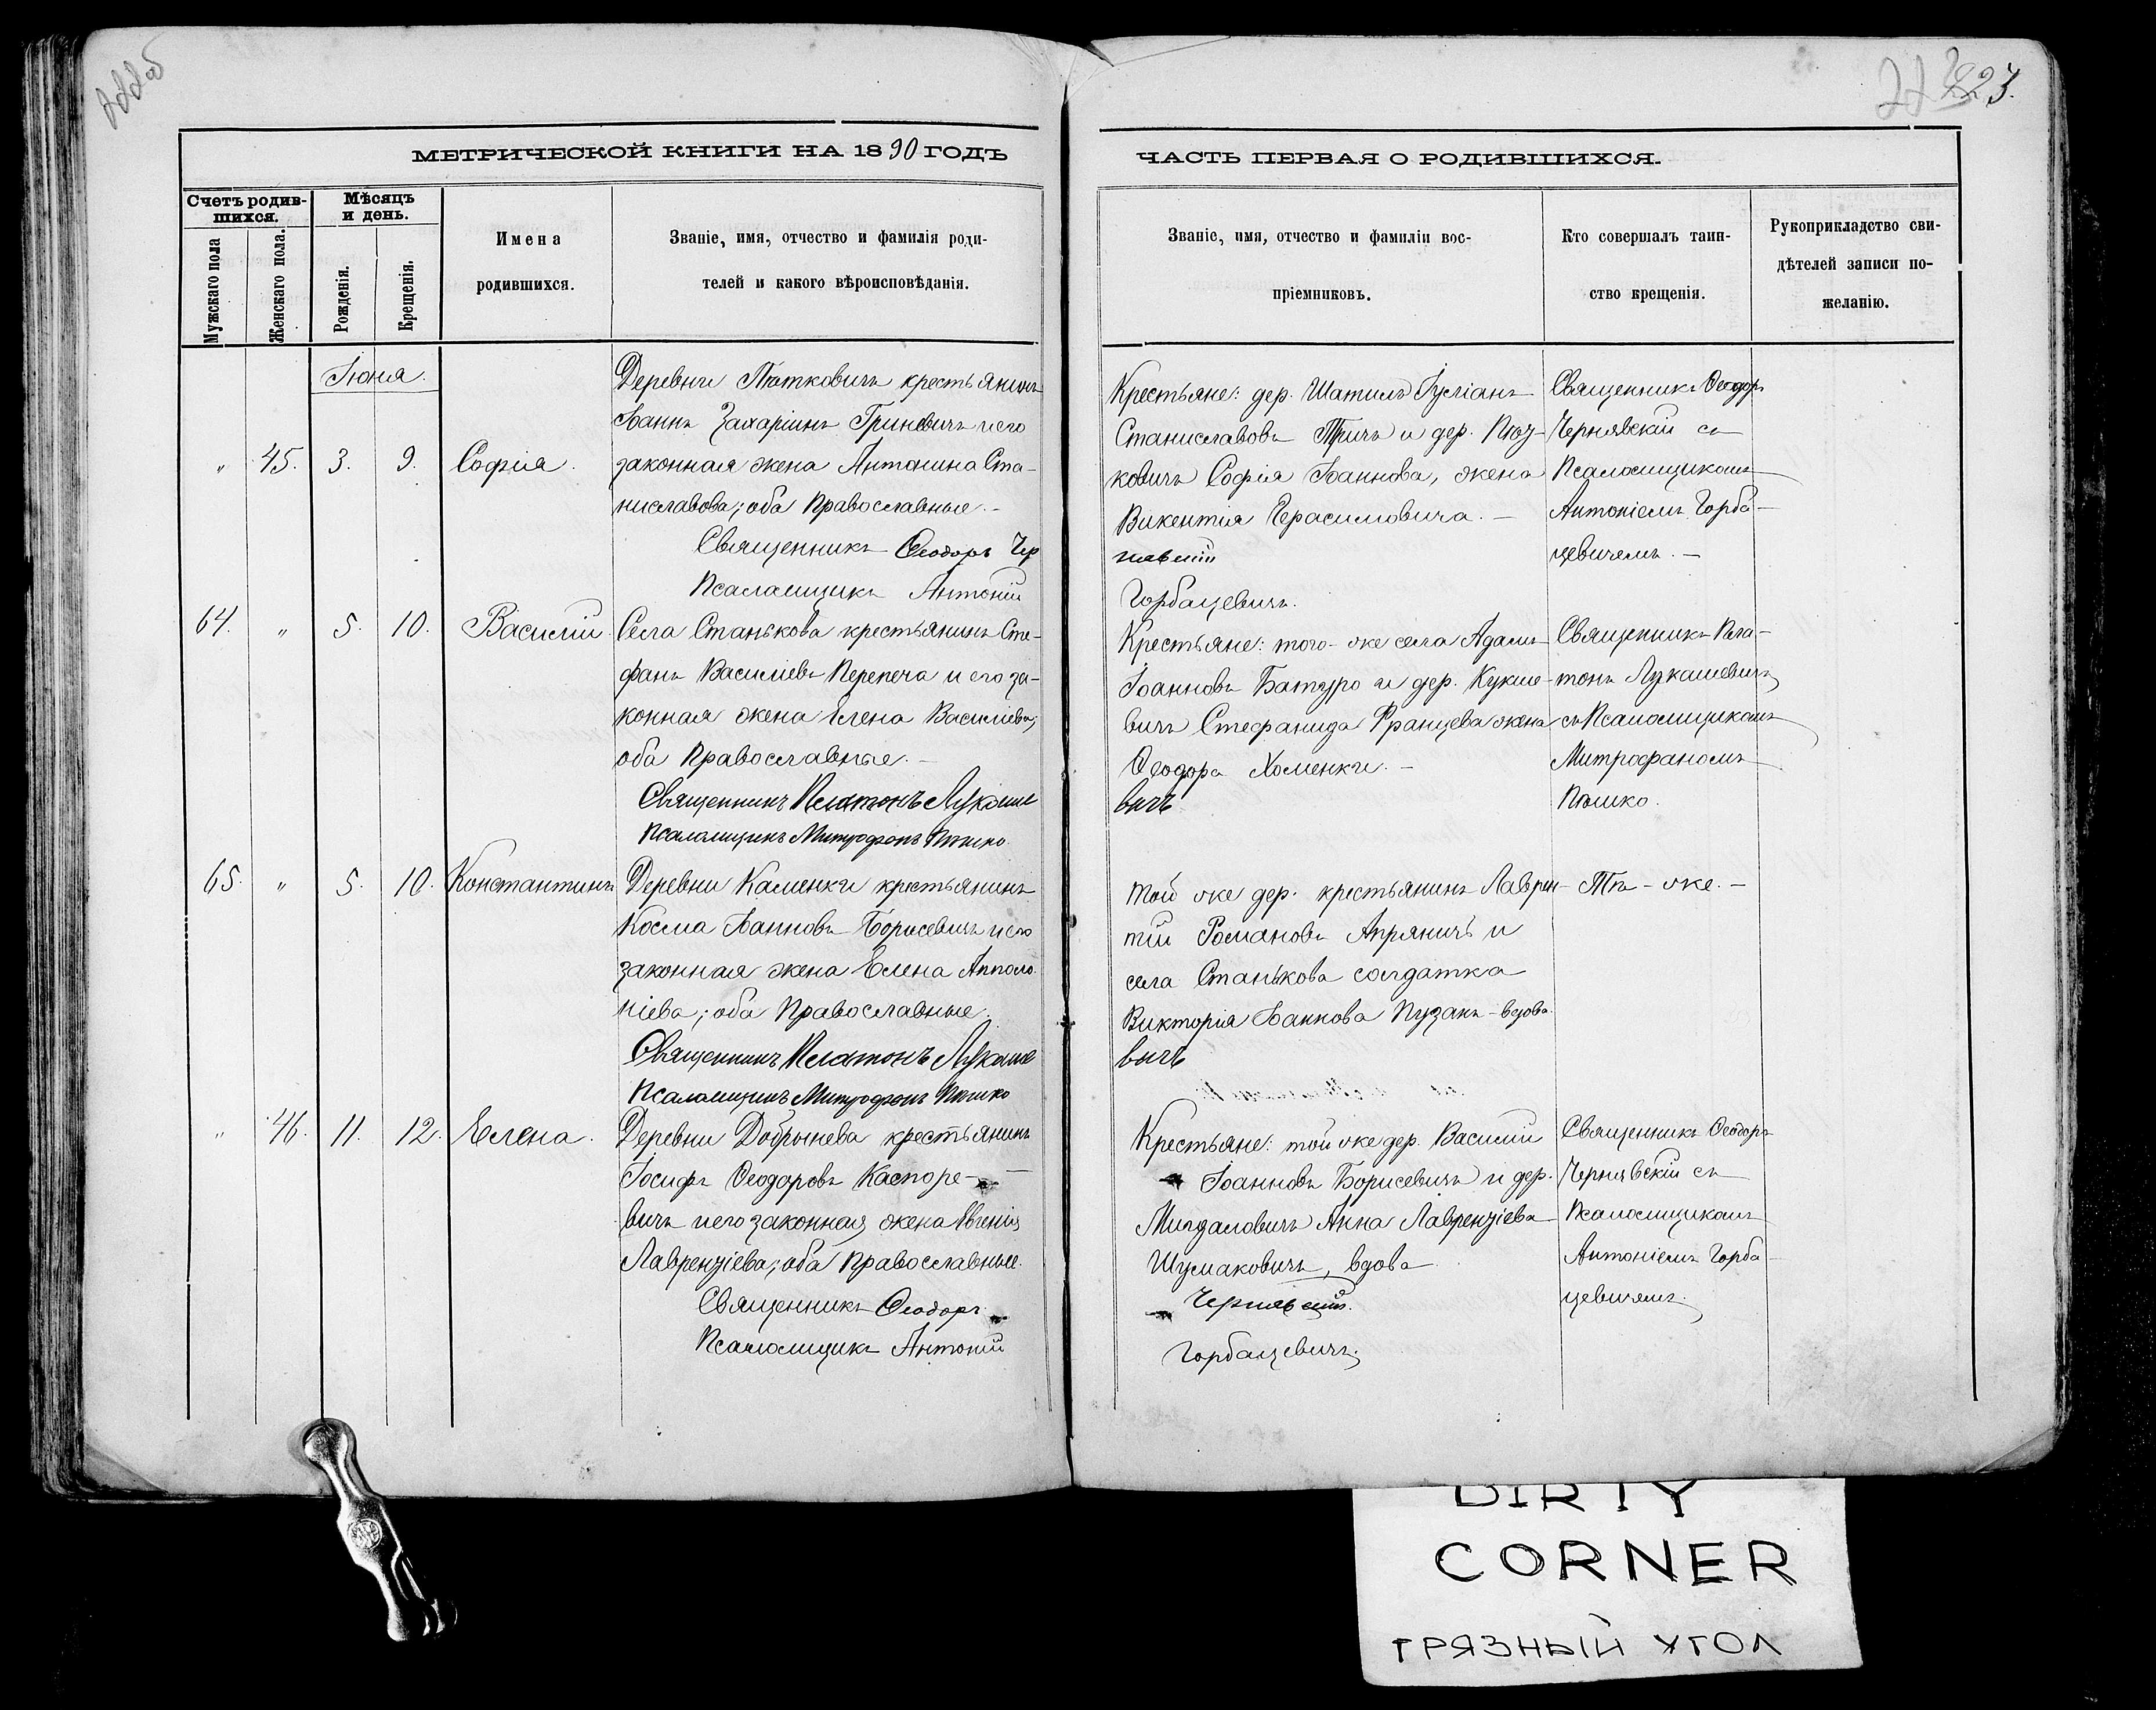 223.
МЕТРИЧЕСКОЙ КНИГИ НА 1890 ГОДЪ
ЧАСТЬ ПЕРВАЯ О РОДИВШИХСЯ.
Счетъ родив-
шихся.
Мужскаго пола
Женскаго пола.
Мѣсяцъ
и день.
Рожденія.
Крещенія.
Имена
родившихся.
Званіе, имя, отчество и фамилія роди-
телей и какого вѣроисповѣданія.
Званіе, имя, отчество и фамиліи вос-
пріемниковъ.
Кто совершалъ таин-
ство крещенія.
Рукоприкладство сви-
дѣтелей записи по-
желанію.
Іюня.
" 45. 3. 9. Софія.
Деревни крестьянинъ
Іоаннъ Захаріинъ Гриневичъ и его
законная жена Антонина Ста-
ниславова; оба Православные. -
Священникъ Ѳеодоръ Чер
Псаломщикъ Антоній
Крестьяне: дер. Шатилъ
Станиславовъ и дер.
ковичъ Софія Іоаннова, жена
Викентія Герасимовича. -
нявскій
Горбацевичъ.
Священникъ Ѳеодоръ
Чернявскій съ
Псаломщикомъ
Антоніемъ Горба-
цевичемъ. -
64. " 5. 10. Василій.
Села Станькова крестьянинъ Сте-
фанъ Василіевъ Перепеча и его за-
конная жена Елена Василіева;
оба Православные. -
Священникъ Платонъ Лукаше
Псаломщикъ Митрофанъ Пѣшко.
Крестьяне: того-же села Адамъ
Іоанновъ Батуро и дер. Кукше-
вичъ Стефанида Францева жена
Ѳеодора Хоменки. -
вичъ
Священникъ Пла-
тонъ Лукашевичъ
съ Псаломщикомъ
Митрофаномъ
Пѣшко.
65. " 5. 10. Константинъ
Деревни Каменки крестьянинъ
Косма Іоанновъ Борисевичъ и его
законная жена Елена Апполо-
ніева; оба Православные.
Священникъ Платонъ Лукаше
Псаломщикъ Митрофанъ Пѣшко
Той же дер. крестьянинъ Лаврен-
тій Романовъ Апряничъ и
села Станькова солдатка
Викторія Іоаннова Пузанъ - вдова.
вичъ
Тѣ-же. -
" 46. 11. 12. Елена.
Деревни Добрынева крестьянинъ
Іосифъ Ѳеодоровъ Каспоре-
вичъ и его законная жена Евгенія
Лаврентіева; оба Православные.
Священникъ Ѳеодоръ
Псаломщикъ Антоній
Крестьяне: той же дер. Василій
Іоанновъ Борисевичъ и дер.
Анна Лаврентіева
Шумаковичъ, вдова
Чернявскій.
Горбацевичъ.
Священникъ Ѳеодоръ
Чернявскій съ
Псаломщикомъ
Антоніемъ Горба-
цевичемъ.
DIRTY
CORNER
ГРЯЗНЫЙ УГОЛ